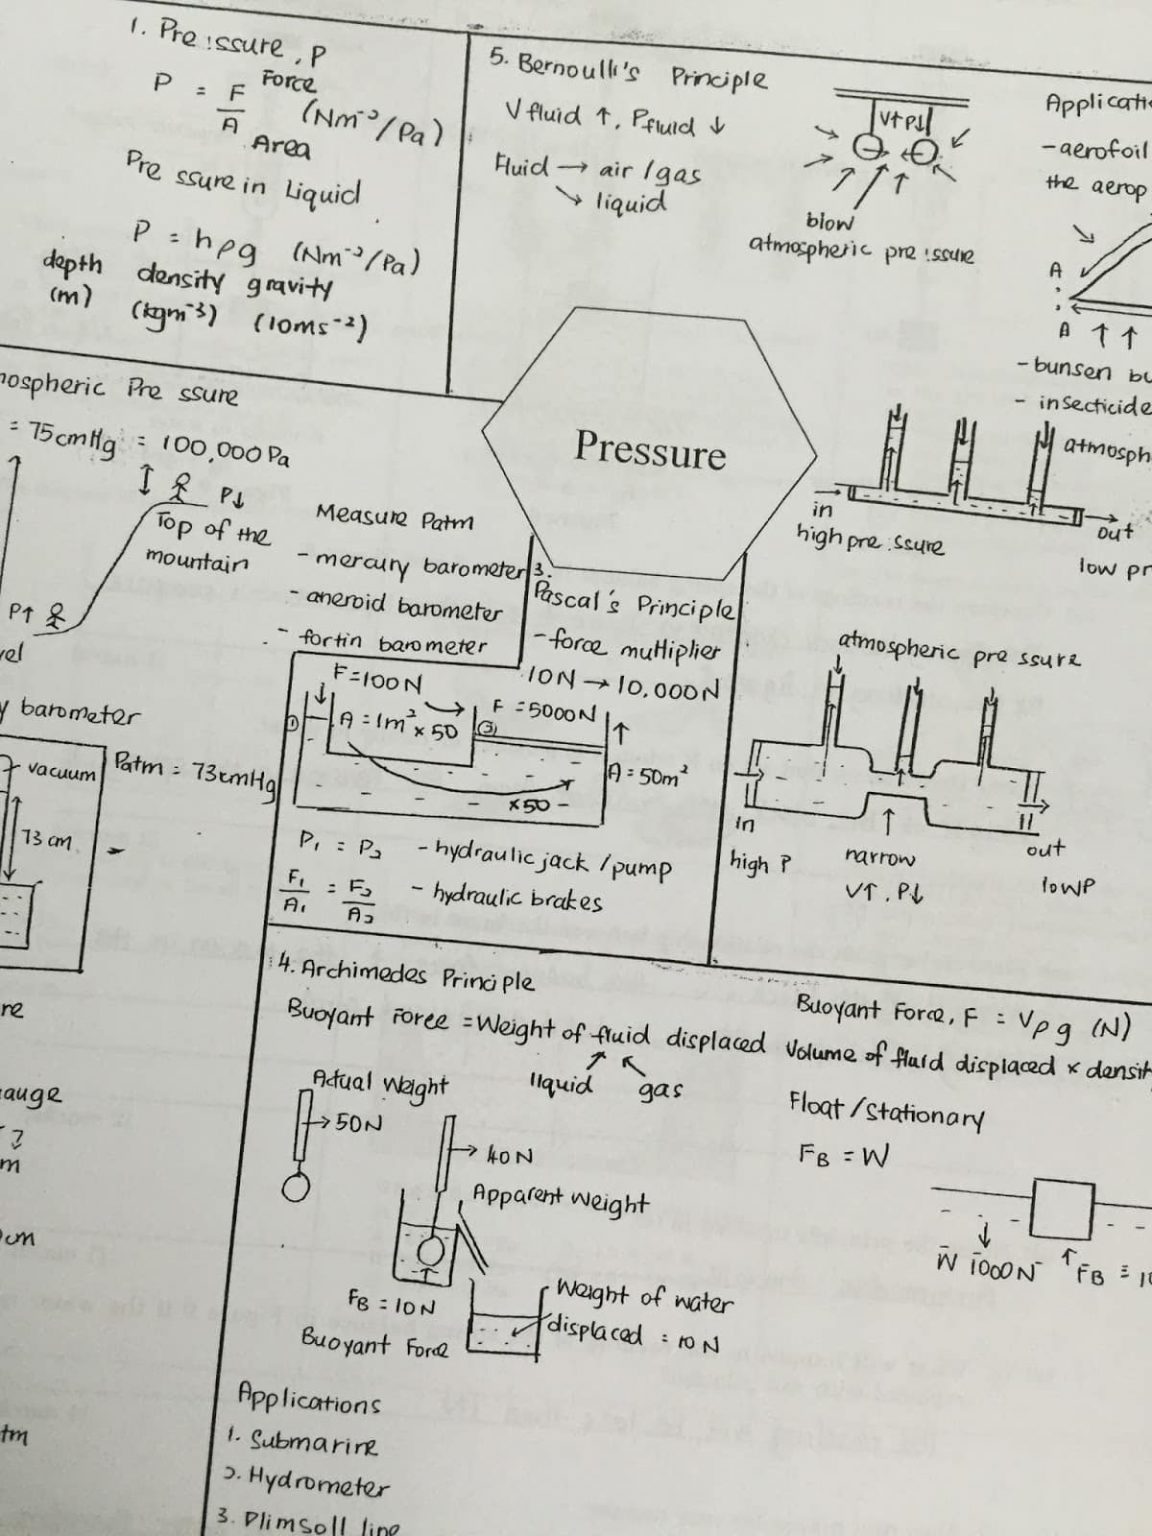 1. Pressure, P
P = F/A Force (Nm⁻²/Pa)
Area
Pressure in Liquid
P = hρg (Nm⁻²/Pa)
depth density gravity
(m) (kgm⁻³) (10ms⁻²)
5. Bernoulli's Principle
Vfluid ↑, Pfluid ↓
Fluid → air/gas
↘ liquid
V↑P↓
blow
atmospheric pressure
-aerofoil
the
A
A
-bunsen
- insecticide
in
high pressure
out
low
Pressure
= 75cmHg = 100,000 Pa
P↓
Top of the
mountain
P↑
Measure Patm
- mercury barometer
- aneroid barometer
- fortin barometer
barometer
vacuum
Patm = 73cmHg
73 cm
3.
Pascal's Principle
-force multiplier
10N → 10,000N
F=100N
F = 5000N
A = 1m² ×50
A = 50m²
×50
P₁ = P₂ - hydraulic jack / pump
F₁/A₁ = F₂/A₂ - hydraulic brakes
atmospheric pressure
in
out
high P
narrow
low P
V↑, P↓
4. Archimedes Principle
Buoyant Force = Weight of fluid displaced
liquid gas
Buoyant Force, F = Vρg (N)
Volume of fluid displaced ×
Float/Stationary
FB = W
W 1000N
FB =
Actual Weight
→ 50N
→ 40N
Apparent Weight
FB = 10N
Buoyant Force
Weight of water
displaced = 10N
Applications
1. Submarine
2. Hydrometer
3. Plimsoll line